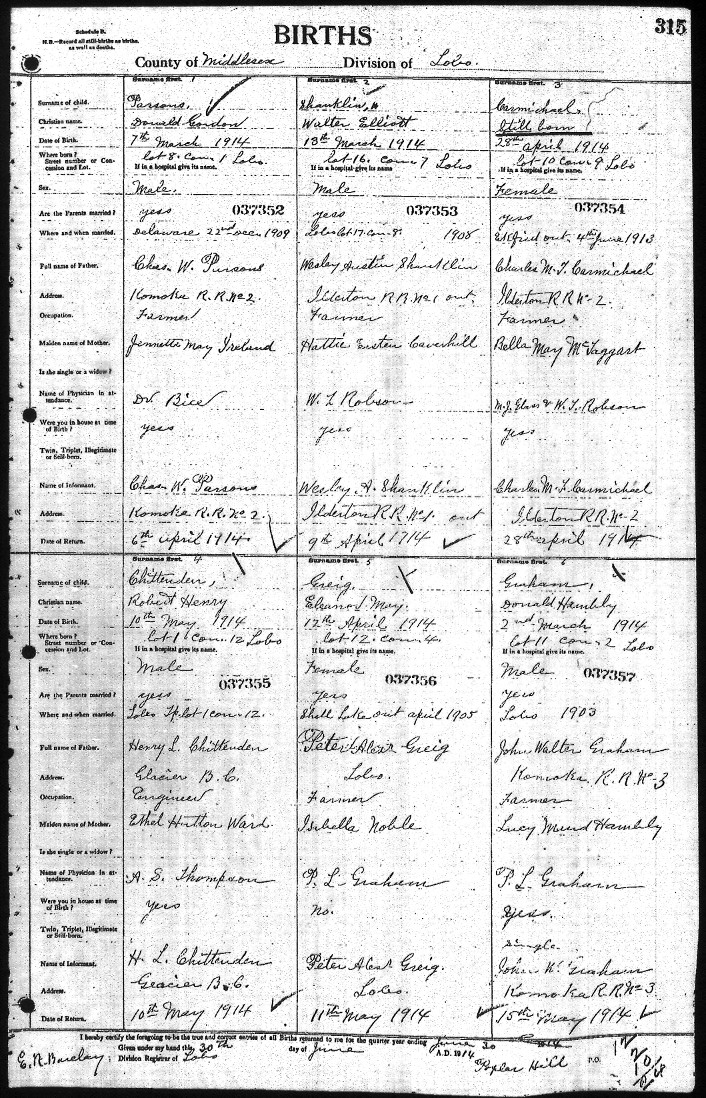 Schedule B.
N.B.—Record all still-births as births, as well as deaths.
BIRTHS
315
County of Middlesex Division of Lobo.
Surname first. 1 Surname first. 2 Surname first. 3
Surname of child. Parsons, Shanklin, Carmichael
Christian name. Donald Gordon Walter Elliott Still born
Date of Birth. 7th March 1914 13th March 1914 28th april 1914
Where born? Street number or Concession and Lot. lot 8. con. 1 Lobo. lot 16. con. 7 Lobo lot 10 con 9 Lobo
If in a hospital give its name. If in a hospital give its name. If in a hospital give its name.
Sex. Male. Male Female
037352 037353 037354
Are the Parents married? yess yess yess
Where and when married. Delaware 22nd Dec. 1909 Lobo lot 17. con 8. 1908 Ekfrid ont. 4th June 1913
Full name of Father. Chas. W. Parsons Wesley Austin Shanklin Charles M. F. Carmichael
Address. Komoka R.R. No 2. Ilderton R R No 1 ont. Ilderton R R No 2.
Occupation. Farmer Farmer Farmer
Maiden name of Mother. Jennette May Ireland Hattie Caverhill Bella May McTaggart
Is she single or a widow?
Name of Physician in attendance. Dr. Bice W. L Robson M. J. Glass & W. L. Robson
Were you in house at time of Birth? yess yess yess
Twin, Triplet, Illegitimate or Still-born.
Name of Informant. Chas. W. Parsons Wesley A. Shanklin Charles M. F. Carmichael
Address. Komoka R.R. No 2. Ilderton R R No 1. ont Ilderton R R. No 2
Date of Return. 6th april 1914 9th April 1914 28th april 1914
Surname first. 4 Surname first. 5 Surname first. 6
Surname of child. Chittenden, Greig. Graham,
Christian name. Robert Henry Eleanor May. Donald Hambly
Date of Birth. 10th May 1914 12th April 1914 2nd March 1914
Where born? Street number or Concession and Lot. lot 1 con. 12 Lobo lot 12. con. 4. lot 11 con. 2 Lobo
If in a hospital give its name. If in a hospital give its name. If in a hospital give its name.
Sex. Male Female Male
037355 037356 037357
Are the Parents married? yess yess yess
Where and when married. Lobo Tp. lot 1 con. 12. Shoal Lake april 1905 Lobo 1903
Full name of Father. Henry L. Chittenden Peter Alex Greig John Walter Graham
Address. Glacier B.C. Lobo. Komoka R. R No 3
Occupation. Engineer Farmer Farmer
Maiden name of Mother. Ethel Hutton Ward. Isabella Noble Lucy Maud Hambly
Is she single or a widow?
Name of Physician in attendance. A. S. Thompson P. L. Graham P. L. Graham
Were you in house at time of Birth? yess no. yess.
Twin, Triplet, Illegitimate or Still-born. single
Name of Informant. H. L. Chittenden Peter Alex Greig. John W. Graham
Address. Glacier B.C. Lobo. Komoka R R No 3
Date of Return. 10th May 1914 11th May 1914 15th May 1914
I hereby certify the foregoing to be the true and correct entries of all Births returned to me for the quarter year ending June 30 1914
Given under my hand this 30th day of June A.D. 1914
E. R. Barclay, Division Registrar of Lobo Poplar Hill P.O.